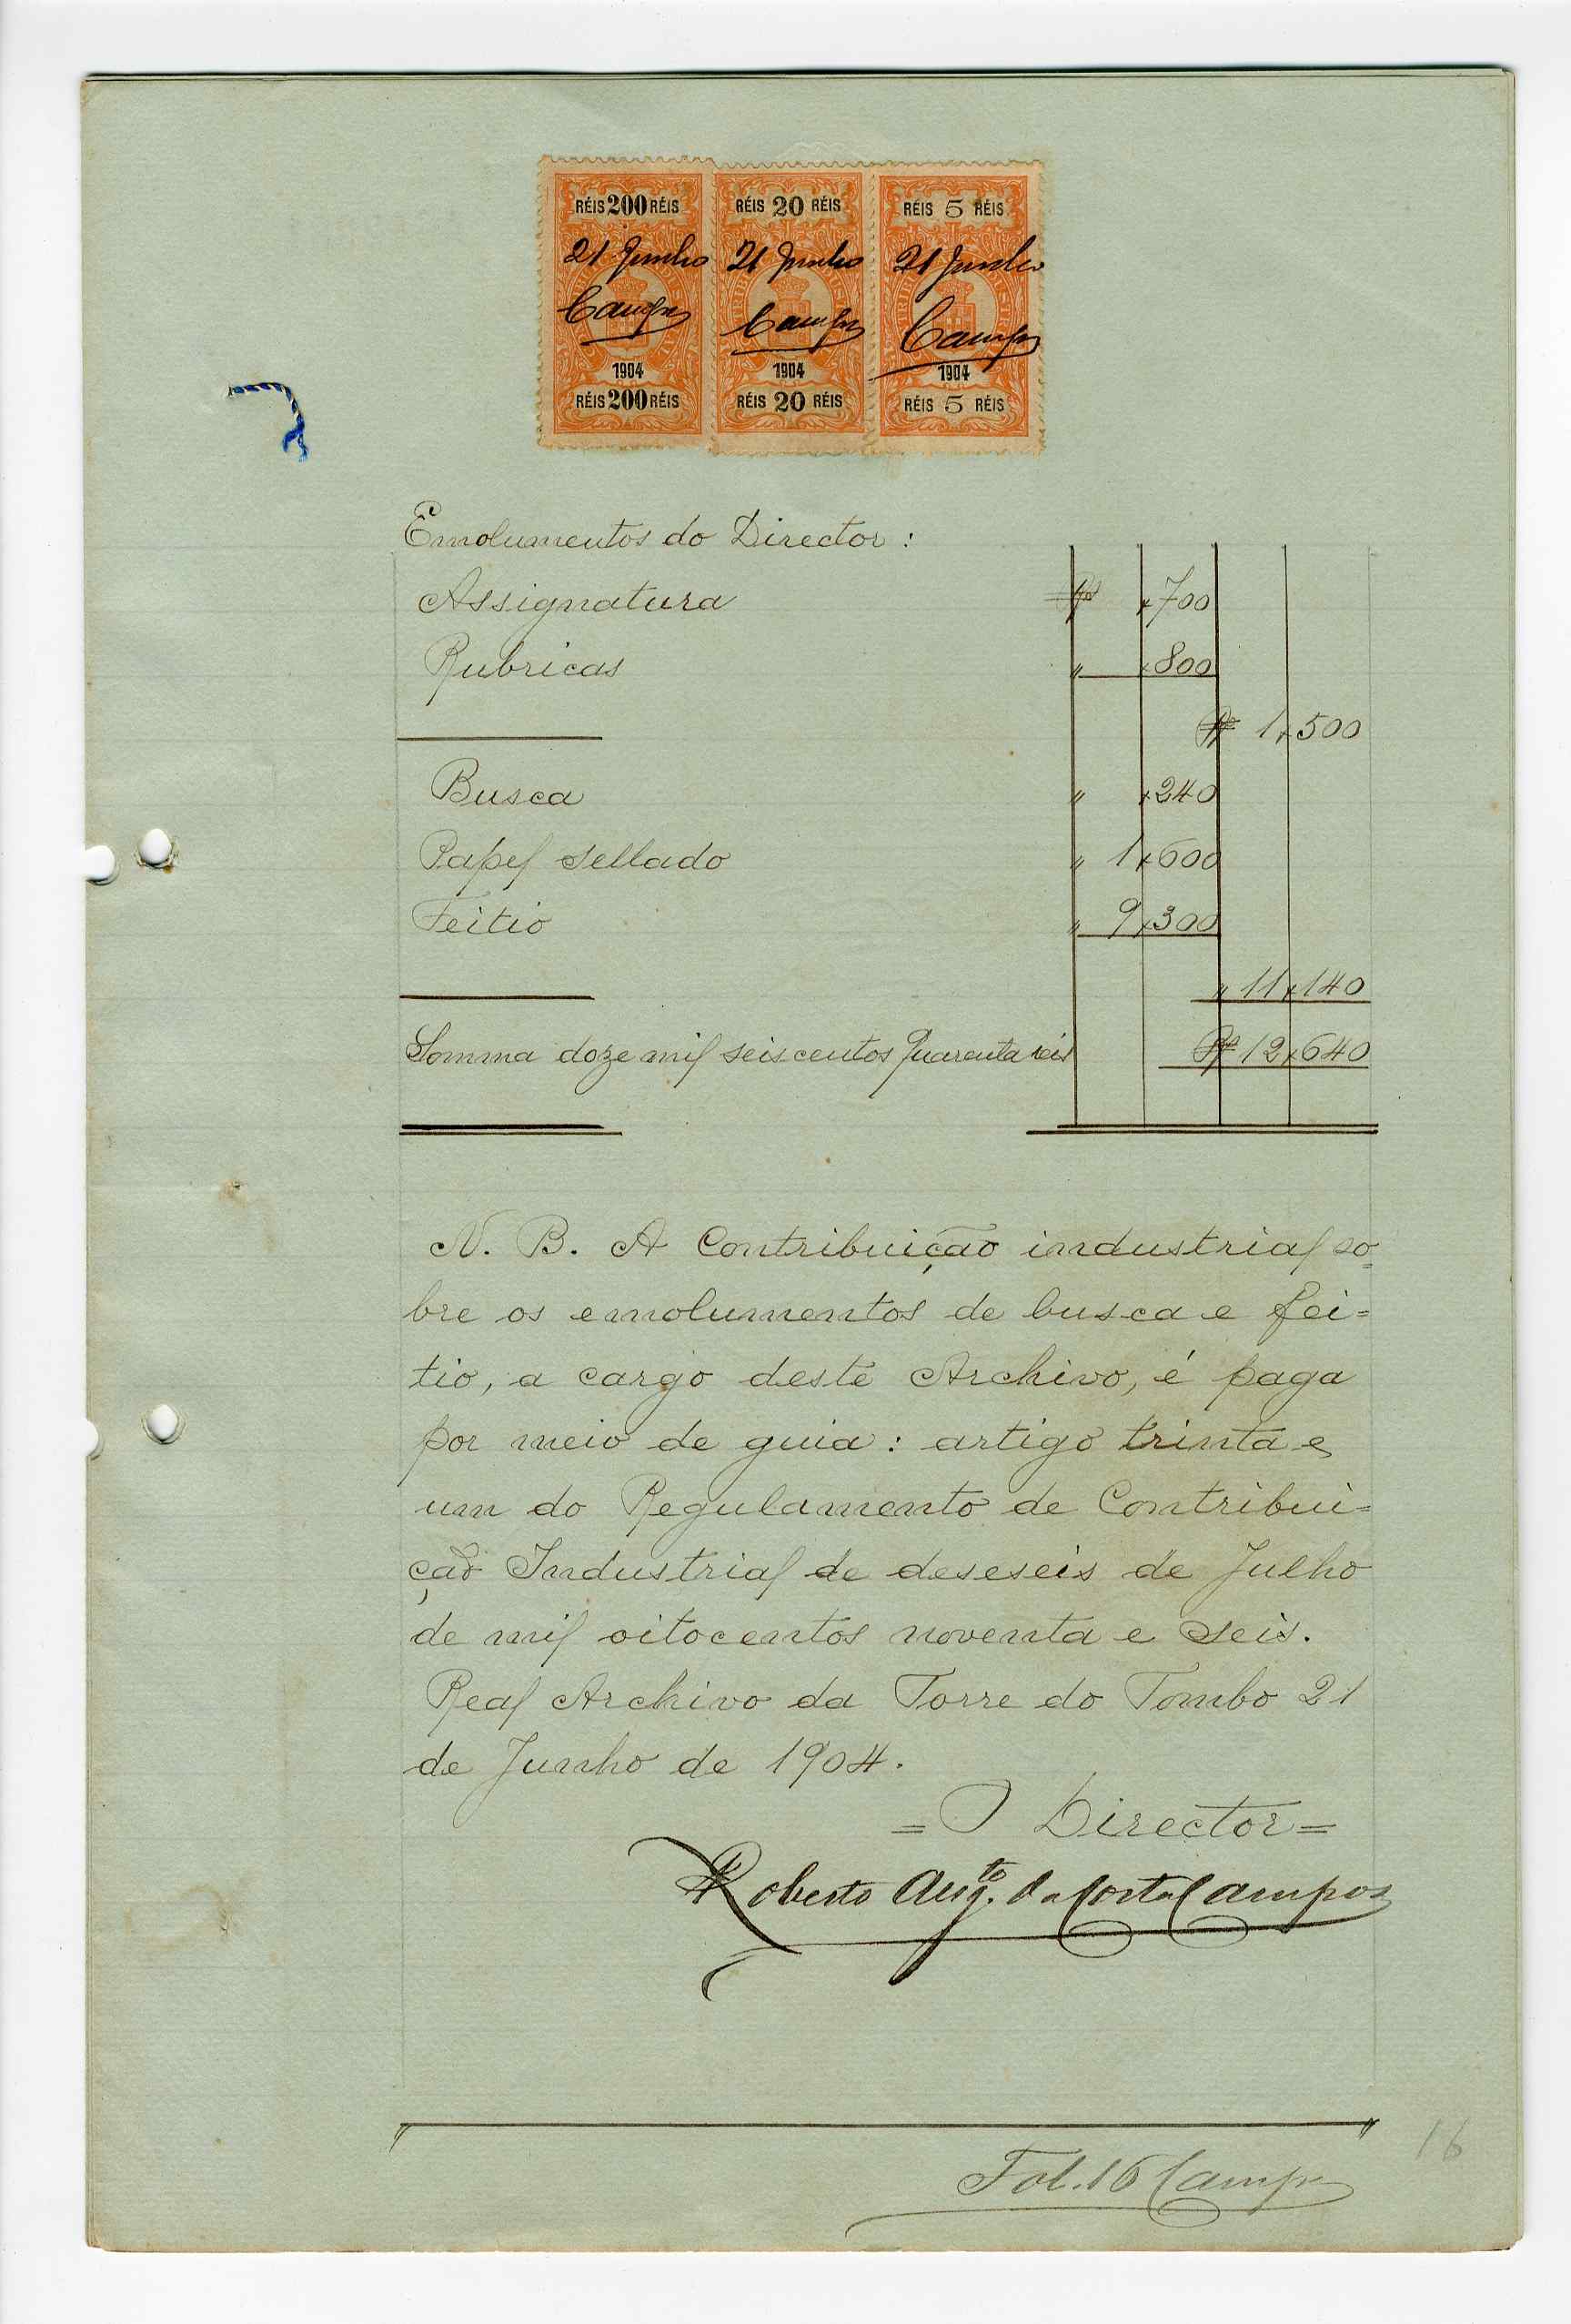 RÉIS 200 RÉIS RÉIS 20 RÉIS RÉIS 5 RÉIS
21 Junho 21 Junho 21 Junho
Campos Campos Campos
1904 1904 1904
RÉIS 200 RÉIS RÉIS 20 RÉIS RÉIS 5 RÉIS
Emolumentos do Director :
Assignatura Rs $700
Rubricas " $800
Rs 1$500
Busca " $240
Papel sellado " 1$600
Feitio " 9$300
" 11$140
Somma doze mil seiscentos quarenta reis Rs 12$640
N. B. A Contribuição industrial so=
bre os emolumentos de busca e fei=
tio, a cargo deste Archivo, é paga
por meio de guia : artigo trinta e
um do Regulamento de Contribui=
ção Industrial de deseseis de Julho
de mil oitocentos noventa e seis.
Real Archivo da Torre do Tombo 21
de Junho de 1904.
= O Director =
Roberto Augto. da Costa Campos
16
Fol. 16 Campos